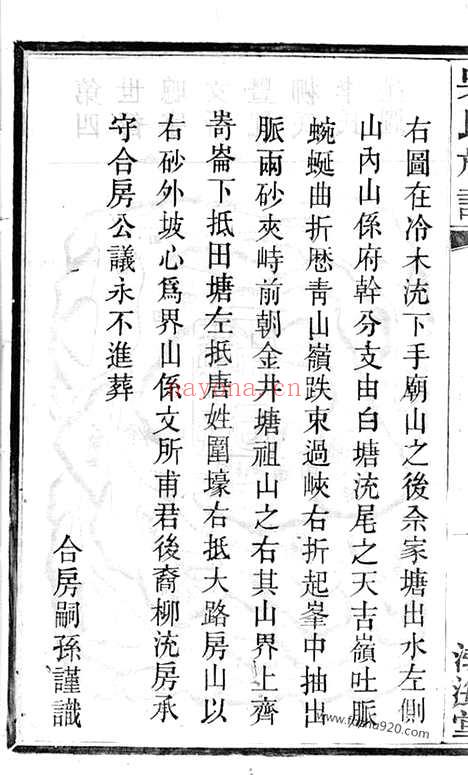 右圖在冷木沇下手廟山之後余家塘出水左側
山內山係府幹分支由白塘沇尾之天吉嶺吐脈
蜿蜒曲折歷青山嶺跌束過峽右折起峯中抽出
脈兩砂夾峙前朝金井塘祖山之右其山界上齊
崙下抵田塘左抵唐姓圍壕右抵大路房山以
右砂外坡心爲界山係文所甫君後裔柳沇房承
守合房公議永不進葬
合房嗣孫謹識
nayana.cn